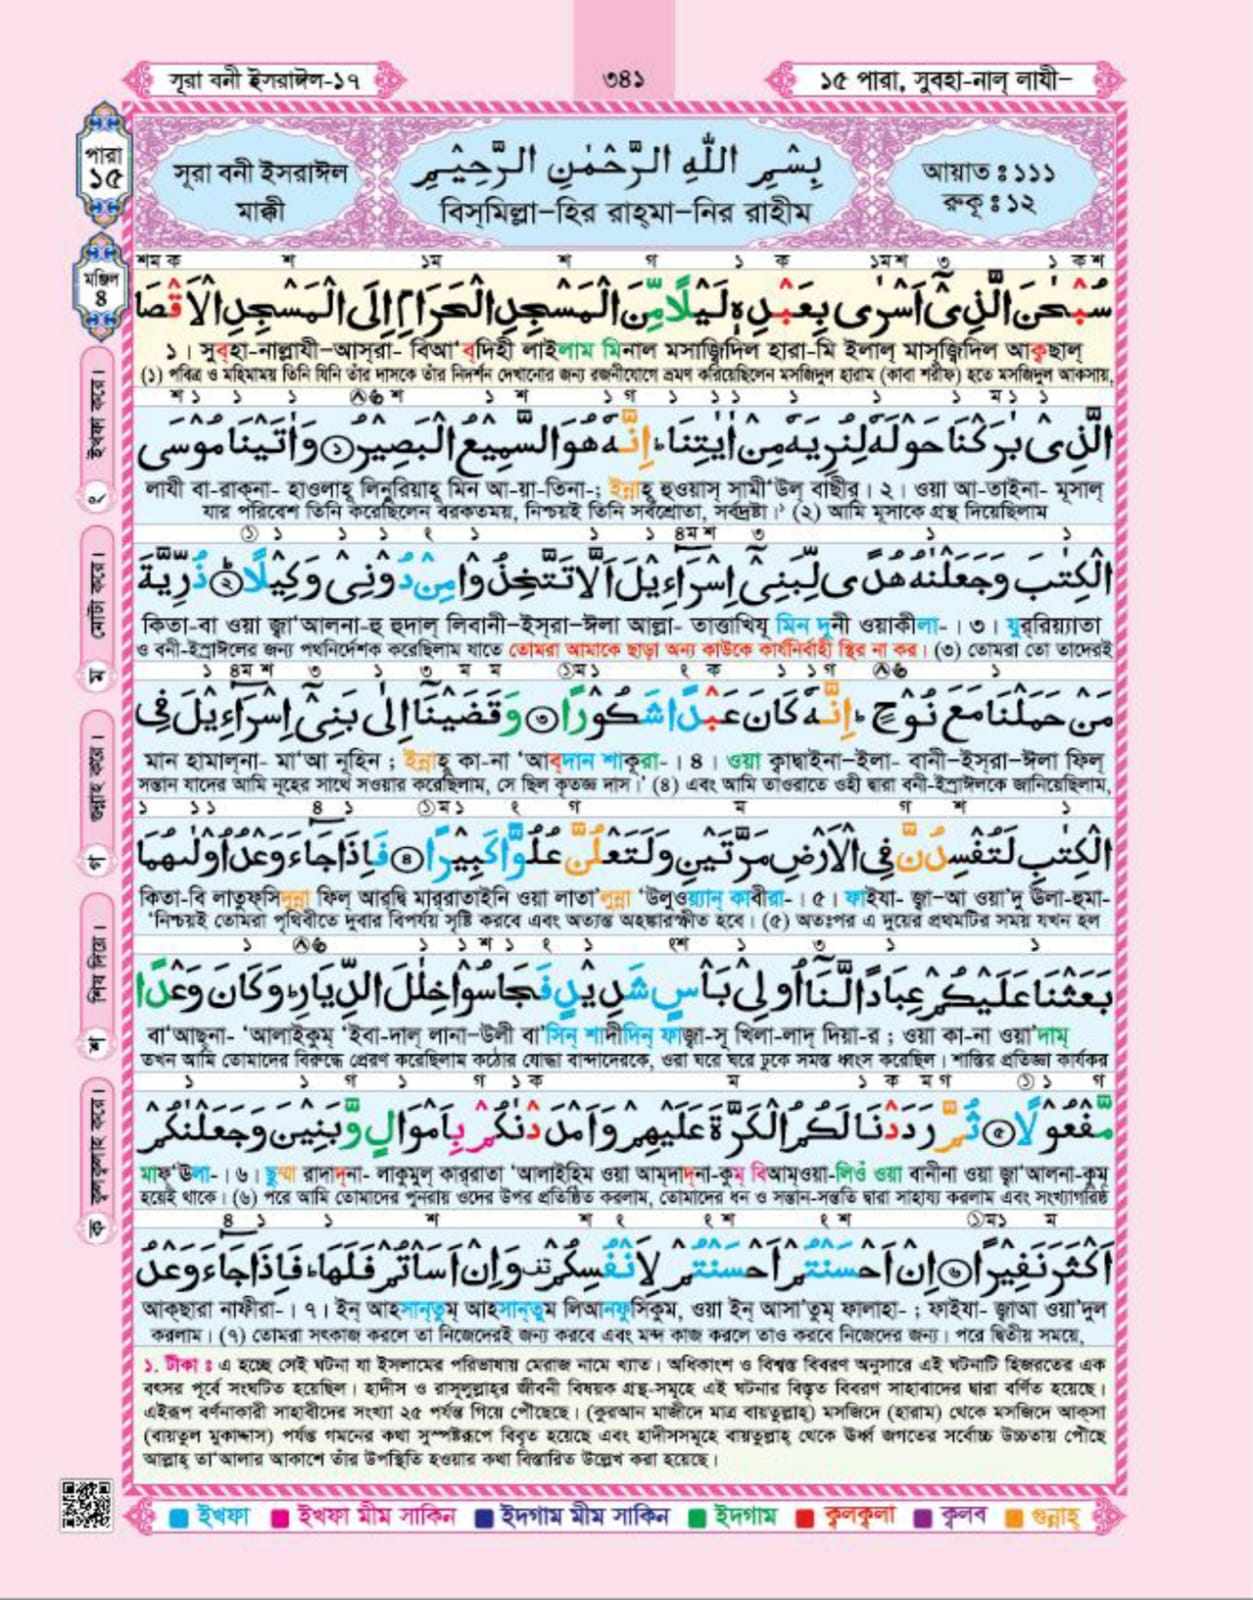 সূরা বনী ইসরাঈল-১৭
৩৪১
১৫ পারা, সুবহা-নাল্ লাযী–
পারা
১৫
সূরা বনী ইসরাঈল
মাক্কী
بِسْمِ اللّٰهِ الرَّحْمٰنِ الرَّحِيْمِ
বিস্‌মিল্লা–হির রাহ্‌মা–নির রাহীম
আয়াত ঃ ১১১
রুকূ ঃ ১২
মঞ্জিল
৪
سُبْحٰنَ الَّذِىْٓ اَسْرٰى بِعَبْدِهٖ لَيْلًا مِّنَ الْمَسْجِدِ الْحَرَامِ اِلَى الْمَسْجِدِ الْاَقْصَا
১। সুবহা-নাল্লাযী–আস্‌রা- বিআ'ব্‌দিহী লাইলাম মিনাল মসাজ্বিদিল হারা-মি ইলাল্ মাস্‌জ্বিদিল আক্বছাল্
(১) পবিত্র ও মহিমাময় তিনি যিনি তাঁর দাসকে তাঁর নিদর্শন দেখানোর জন্য রজনীযোগে ভ্রমণ করিয়েছিলেন মসজিদুল হারাম (কাবা শরীফ) হতে মসজিদুল আকসায়,
الَّذِىْ بٰرَكْنَا حَوْلَهٗ لِنُرِيَهٗ مِنْ اٰيٰتِنَا ؕ اِنَّهٗ هُوَ السَّمِيْعُ الْبَصِيْرُ ۝١ وَاٰتَيْنَا مُوْسَى
লাযী বা-রাক্‌না- হাওলাহূ লিনুরিয়াহূ মিন আ-য়া-তিনা-; ইন্নাহূ হুওয়াস্ সামী'উল্ বাছীর। ২। ওয়া আ-তাইনা- মূসাল্
যার পরিবেশ তিনি করেছিলেন বরকতময়, নিশ্চয়ই তিনি সর্বশ্রোতা, সর্বদ্রষ্টা।¹ (২) আমি মূসাকে গ্রন্থ দিয়েছিলাম
الْكِتٰبَ وَجَعَلْنٰهُ هُدًى لِّبَنِىْٓ اِسْرَآءِيْلَ اَلَّا تَتَّخِذُوْا مِنْ دُوْنِىْ وَكِيْلًا ؕ۝٢ ذُرِّيَّةَ
কিতা-বা ওয়া জ্বা'আলনা-হু হুদাল্ লিবানী–ইস্‌রা–ঈলা আল্লা- তাত্তাখিযূ মিন দূনী ওয়াকীলা-। ৩। যুর্‌রিয়্যাতা
ও বনী-ইস্রাঈলের জন্য পথনির্দেশক করেছিলাম যাতে তোমরা আমাকে ছাড়া অন্য কাউকে কার্যনির্বাহী স্থির না কর। (৩) তোমরা তো তাদেরই
مَنْ حَمَلْنَا مَعَ نُوْحٍ ؕ اِنَّهٗ كَانَ عَبْدًا شَكُوْرًا ۝٣ وَقَضَيْنَآ اِلٰى بَنِىْٓ اِسْرَآءِيْلَ فِى
মান হামাল্‌না- মা'আ নূহিন ; ইন্নাহূ কা-না 'আব্‌দান শাকূরা-। ৪। ওয়া ক্বাদ্বাইনা–ইলা- বানী–ইস্‌রা–ঈলা ফিল্
সন্তান যাদের আমি নূহের সাথে সওয়ার করেছিলাম, সে ছিল কৃতজ্ঞ দাস।' (৪) এবং আমি তাওরাতে ওহী দ্বারা বনী-ইস্রাঈলকে জানিয়েছিলাম,
الْكِتٰبِ لَتُفْسِدُنَّ فِى الْاَرْضِ مَرَّتَيْنِ وَلَتَعْلُنَّ عُلُوًّا كَبِيْرًا ۝٤ فَاِذَا جَآءَ وَعْدُ اُوْلٰىهُمَا
কিতা-বি লাতুফ্‌সিদুন্না ফিল্ আর্‌দ্বি মার্‌রাতাইনি ওয়া লাতা'লুন্না 'উলুওয়্যান্ কাবীরা-। ৫। ফাইযা- জ্বা–আ ওয়া'দু ঊলা-হুমা-
'নিশ্চয়ই তোমরা পৃথিবীতে দুবার বিপর্যয় সৃষ্টি করবে এবং অত্যন্ত অহঙ্কারস্ফীত হবে। (৫) অতঃপর এ দুয়ের প্রথমটির সময় যখন হল
بَعَثْنَا عَلَيْكُمْ عِبَادًا لَّنَآ اُولِىْ بَاْسٍ شَدِيْدٍ فَجَاسُوْا خِلٰلَ الدِّيَارِ ؕ وَكَانَ وَعْدًا
বা'আছ্‌না- 'আলাইকুম্ 'ইবা-দাল্ লানা–উলী বা'সিন্ শাদীদিন্ ফাজ্বা-সূ খিলা-লাদ্ দিয়া-র ; ওয়া কা-না ওয়া'দাম্
তখন আমি তোমাদের বিরুদ্ধে প্রেরণ করেছিলাম কঠোর যোদ্ধা বান্দাদেরকে, ওরা ঘরে ঘরে ঢুকে সমস্ত ধ্বংস করেছিল। শাস্তির প্রতিজ্ঞা কার্যকর
مَّفْعُوْلًا ۝٥ ثُمَّ رَدَدْنَا لَكُمُ الْكَرَّةَ عَلَيْهِمْ وَاَمْدَدْنٰكُمْ بِاَمْوَالٍ وَّبَنِيْنَ وَجَعَلْنٰكُمْ
মাফ্'ঊলা-। ৬। ছুম্মা রাদাদ্‌না- লাকুমুল্ কার্‌রাতা 'আলাইহিম ওয়া আম্‌দাদ্‌না-কুম্ বিআম্‌ওয়া-লিওঁ ওয়া বানীনা ওয়া জ্বা'আলনা-কুম্
হয়েই থাকে। (৬) পরে আমি তোমাদের পুনরায় ওদের উপর প্রতিষ্ঠিত করলাম, তোমাদের ধন ও সন্তান-সন্ততি দ্বারা সাহায্য করলাম এবং সংখ্যাগরিষ্ঠ
اَكْثَرَ نَفِيْرًا ۝٦ اِنْ اَحْسَنْتُمْ اَحْسَنْتُمْ لِاَنْفُسِكُمْ وَاِنْ اَسَاْتُمْ فَلَهَا ؕ فَاِذَا جَآءَ وَعْدُ
আক্‌ছারা নাফীরা-। ৭। ইন্ আহসান্‌তুম্ আহসান্‌তুম লিআনফুসিকুম, ওয়া ইন্ আসা'তুম্ ফালাহা- ; ফাইযা- জ্বাআ ওয়া'দুল
করলাম। (৭) তোমরা সৎকাজ করলে তা নিজেদেরই জন্য করবে এবং মন্দ কাজ করলে তাও করবে নিজেদের জন্য। পরে দ্বিতীয় সময়ে,
১. টীকা ঃ এ হচ্ছে সেই ঘটনা যা ইসলামের পরিভাষায় মেরাজ নামে খ্যাত। অধিকাংশ ও বিশ্বস্ত বিবরণ অনুসারে এই ঘটনাটি হিজরতের এক
বৎসর পূর্বে সংঘটিত হয়েছিল। হাদীস ও রাসূলুল্লাহ্‌র জীবনী বিষয়ক গ্রন্থ-সমূহে এই ঘটনার বিস্তৃত বিবরণ সাহাবাদের দ্বারা বর্ণিত হয়েছে।
এইরূপ বর্ণনাকারী সাহাবীদের সংখ্যা ২৫ পর্যন্ত গিয়ে পৌঁছেছে। (কুরআন মাজীদে মাত্র বায়তুল্লাহ্) মসজিদে (হারাম) থেকে মসজিদে আক্‌সা
(বায়তুল মুকাদ্দাস) পর্যন্ত গমনের কথা সুস্পষ্টরূপে বিবৃত হয়েছে এবং হাদীসসমূহে বায়তুল্লাহ্ থেকে ঊর্ধ্ব জগতের সর্বোচ্চ উচ্চতায় পৌঁছে
আল্লাহ্ তা'আলার আকাশে তাঁর উপস্থিতি হওয়ার কথা বিস্তারিত উল্লেখ করা হয়েছে।
২ ইখফা করে।
ম মোটা করে।
গ গুন্নাহ করে।
শ শিষ দিয়ে।
ক কুলকুলাহ করে।
ইখফা
ইখফা মীম সাকিন
ইদগাম মীম সাকিন
ইদগাম
ক্বলক্বলা
ক্বলব
গুন্নাহ্